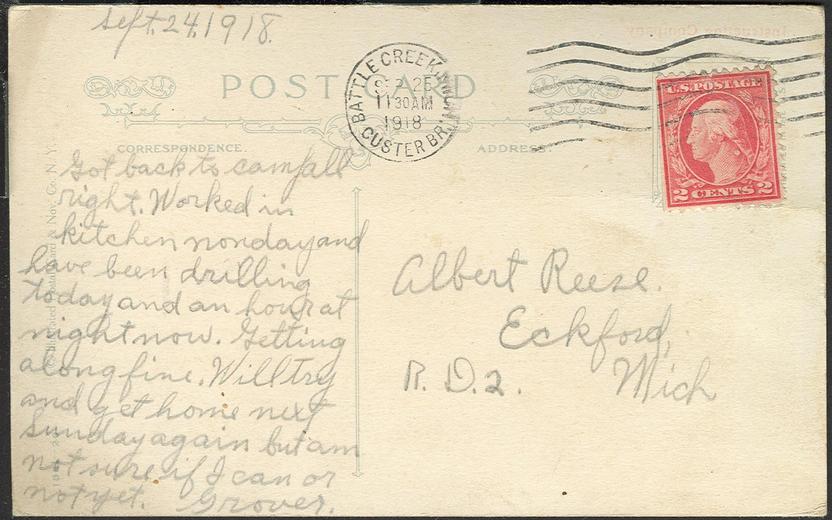 Sept. 24, 1918.
POST CARD
BATTLE CREEK, MICH.
SEP 25
11 30 AM
1918
CUSTER BR.
U.S. POSTAGE
2 CENTS 2
CORRESPONDENCE.
ADDRESS.
Got back to camp all
right. Worked in
kitchen monday and
have been drilling
today and an hour at
night now. Getting
along fine. Will try
and get home next
Sunday again but am
not sure if I can or
not yet. Grover.
Albert Reese.
Eckford,
R. D. 2. Mich